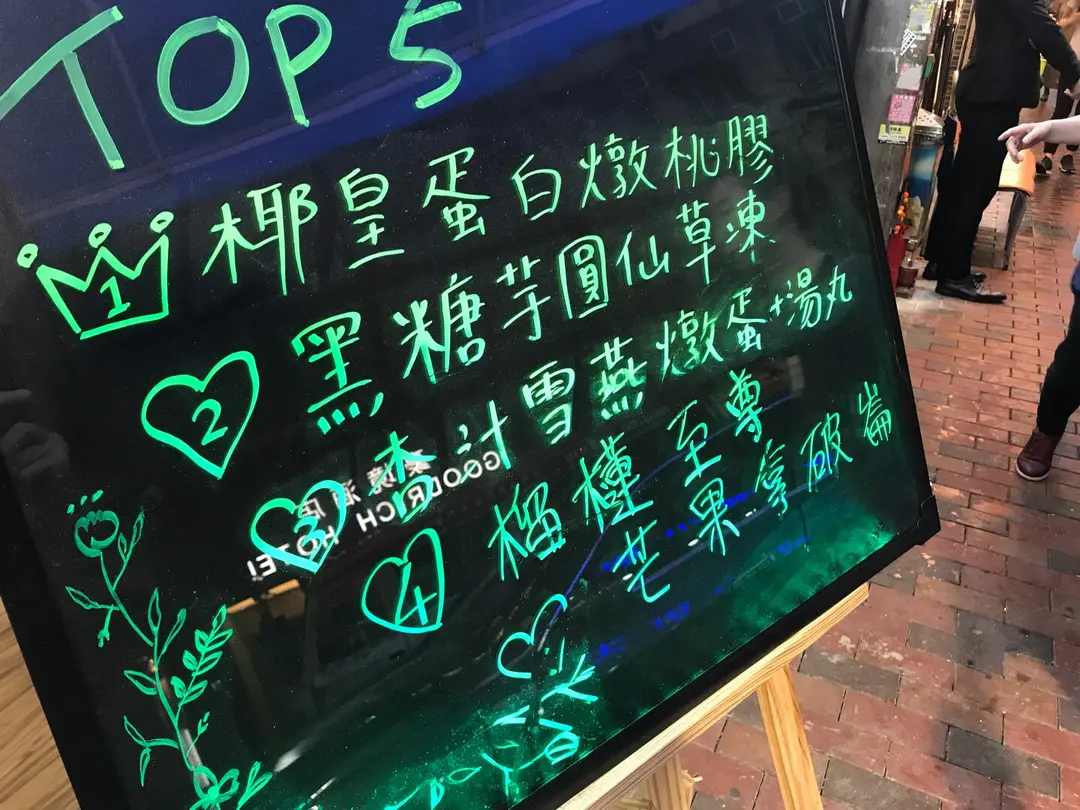 TOP 5
1 椰皇蛋白燉桃膠
2 黑糖芋圓仙草凍
3 杏汁雪燕燉蛋+湯丸
4 榴槤至尊
芒果拿破崙
GOODRICH HOTEL